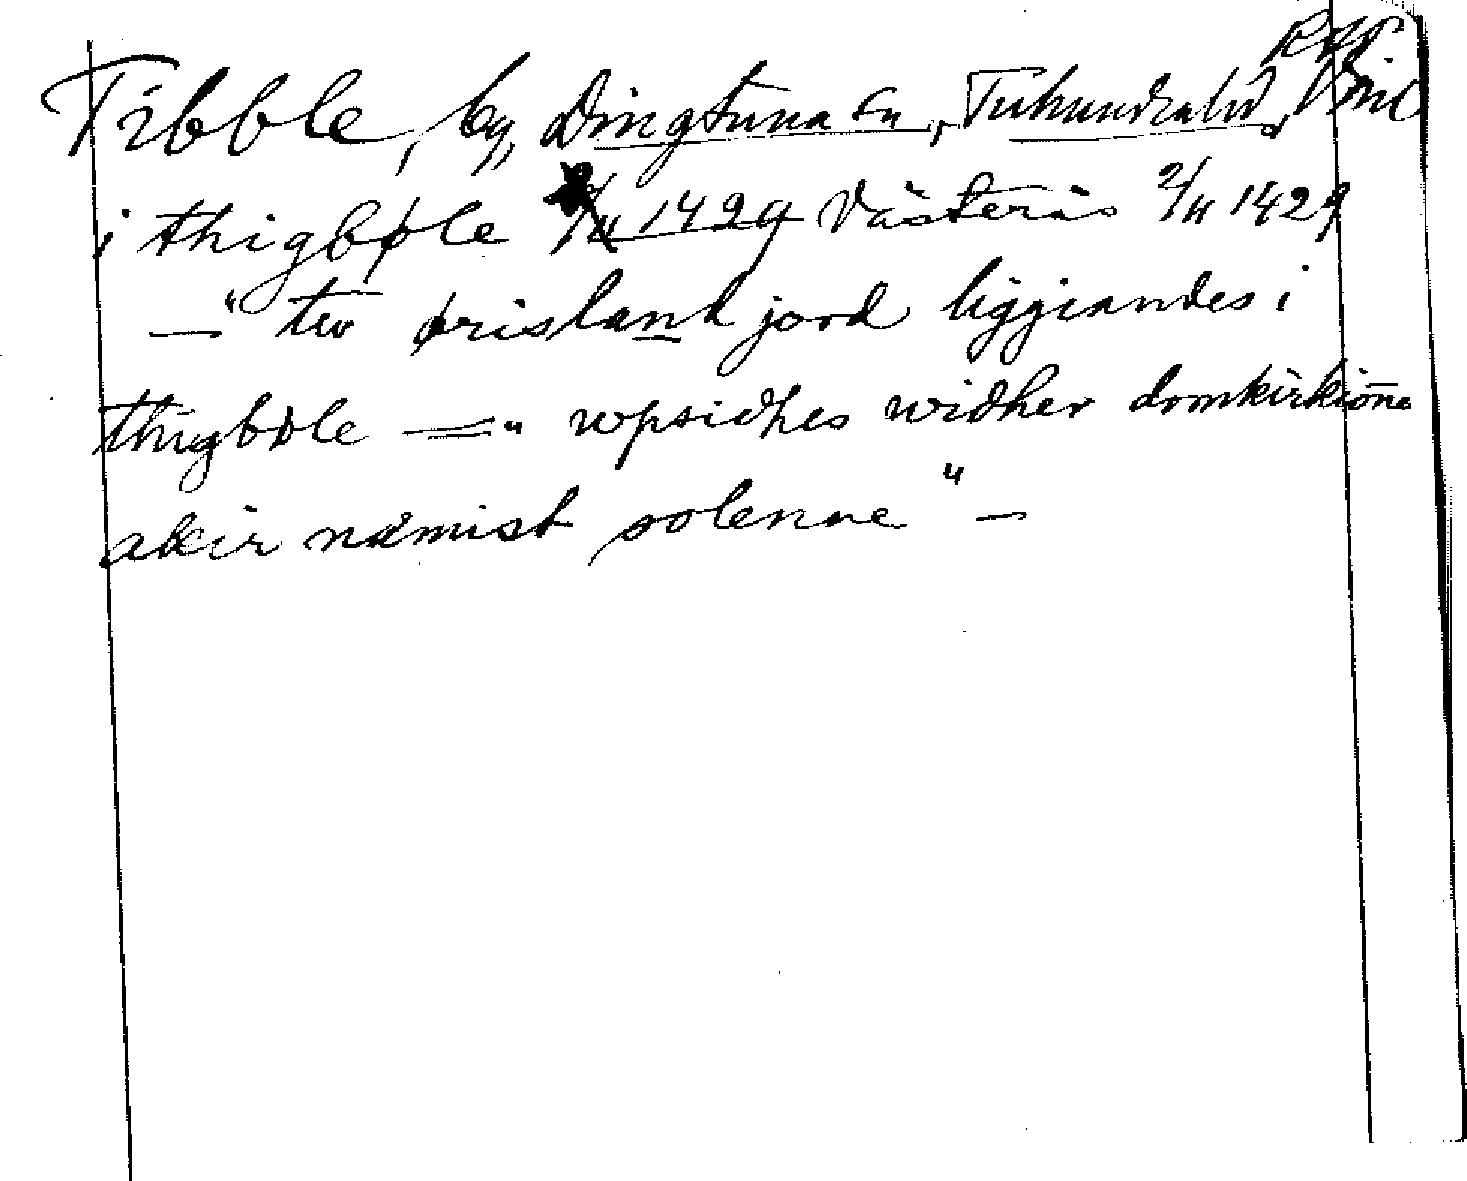 Tibble, by, Dingtuna sn, Tuhundra hd,
i thigbøle 2/11 1429 Västerås 2/11 1429
—" tw ørisland jord liggiandes i
thigbøle —" wpsidhes widher domkirkiöne
akir næmist solenne" —